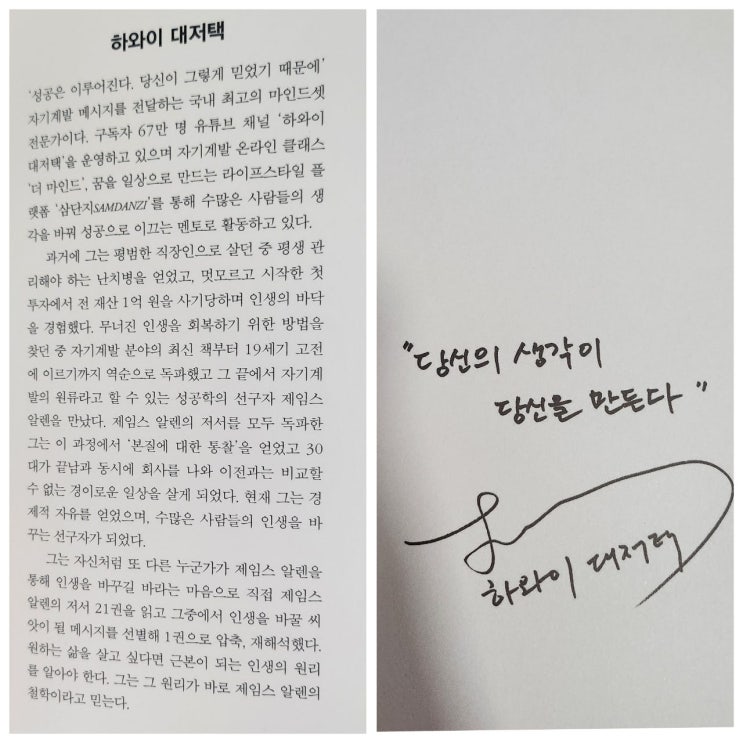 하와이 대저택
‘성공은 이루어진다. 당신이 그렇게 믿었기 때문에’
자기계발 메시지를 전달하는 국내 최고의 마인드셋
전문가이다. 구독자 67만 명 유튜브 채널 ‘하와이
대저택’을 운영하고 있으며 자기계발 온라인 클래스
‘더 마인드’, 꿈을 일상으로 만드는 라이프스타일 플
랫폼 ‘삼단지SAMDANZI’를 통해 수많은 사람들의 생
각을 바꿔 성공으로 이끄는 멘토로 활동하고 있다.
과거에 그는 평범한 직장인으로 살던 중 평생 관
리해야 하는 난치병을 얻었고, 멋모르고 시작한 첫
투자에서 전 재산 1억 원을 사기당하며 인생의 바닥
을 경험했다. 무너진 인생을 회복하기 위한 방법을
찾던 중 자기계발 분야의 최신 책부터 19세기 고전
에 이르기까지 역순으로 독파했고 그 끝에서 자기계
발의 원류라고 할 수 있는 성공학의 선구자 제임스
알렌을 만났다. 제임스 알렌의 저서를 모두 독파한
그는 이 과정에서 ‘본질에 대한 통찰’을 얻었고 30
대가 끝남과 동시에 회사를 나와 이전과는 비교할
수 없는 경이로운 일상을 살게 되었다. 현재 그는 경
제적 자유를 얻었으며, 수많은 사람들의 인생을 바
꾸는 선구자가 되었다.
그는 자신처럼 또 다른 누군가가 제임스 알렌을
통해 인생을 바꾸길 바라는 마음으로 직접 제임스
알렌의 저서 21권을 읽고 그중에서 인생을 바꿀 씨
앗이 될 메시지를 선별해 1권으로 압축, 재해석했다.
원하는 삶을 살고 싶다면 근본이 되는 인생의 원리
를 알아야 한다. 그는 그 원리가 바로 제임스 알렌의
철학이라고 믿는다.
"당신의 생각이
당신을 만든다"
하와이 대저택